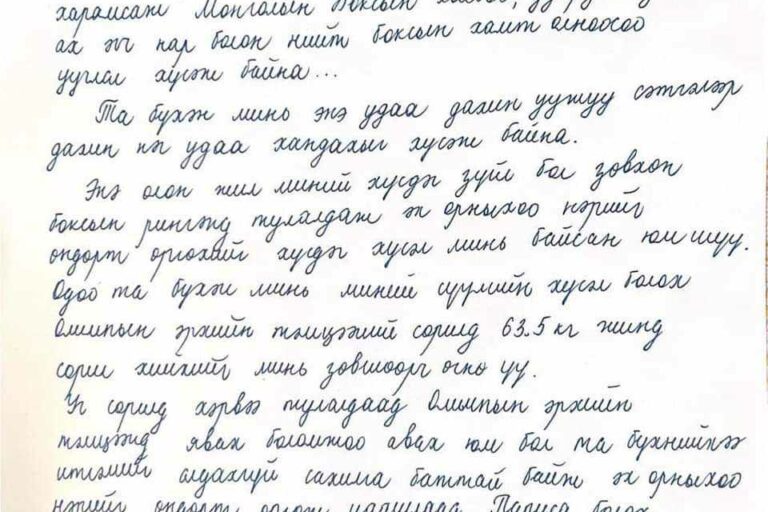 харамсаж Монголын боксын холбоо,
ах эгч нар болон нийт боксын хамт олноосоо
уучлал хүсэж байна...
Та бүхэн минь энэ удаа дахин уужуу сэтгэлээр
дахин нэг удаа хандахыг хүсэж байна.
Энэ олон жил миний хүсдэг зүйл бол зөвхөн
боксын рингэнд тулалдаж эх орныхоо нэрийг
өндөрт өргөхийг хүсдэг хүсэл минь байсан юм шүү.
Одоо та бүхэн минь миний сүүлийн хүсэл болох
Олимпын эрхийн тэмцээний сорилд 63.5 кг жинд
сорил хийхийг минь зөвшөөрч өгнө үү.
Уг сорилд хэрвээ тулалдаад Олимпын эрхийн
тэмцээнд явах боломжоо авах юм бол та бүхнийхээ
итгэлийг алдахгүй сахилга баттай байж эх орныхоо
нэрийг өндөрт өргөж цаашлаад Парист болох